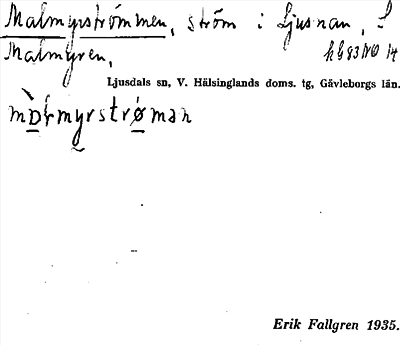 Malmyrströmmen, ström i Ljusnan, S
Malmyren.
hG 83 NO 14
Ljusdals sn, V. Hälsinglands doms. tg, Gävleborgs län.
Erik Fallgren 1935.